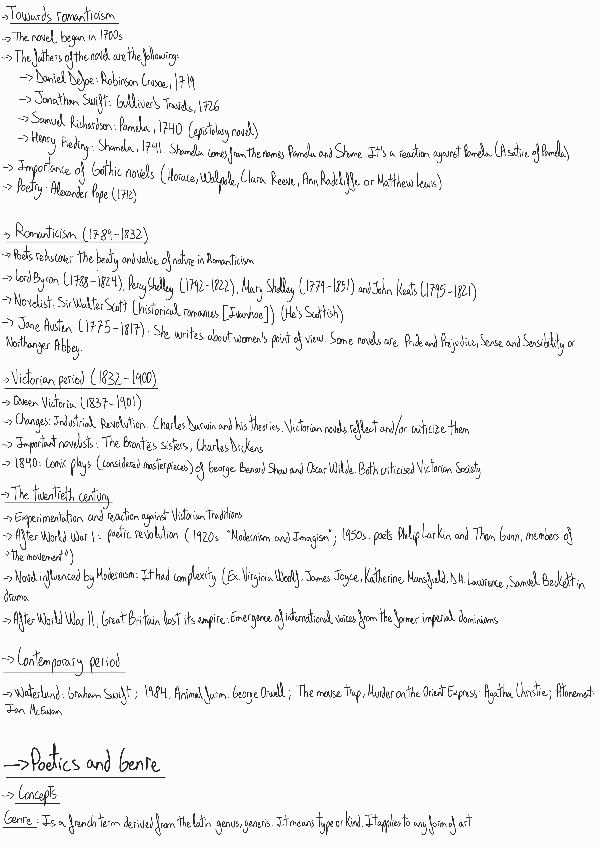 →Towards romanticism
→The novel began in 1700s
→The fathers of the novel are the following:
→Daniel Defoe: Robinson Crusoe, 1719
→Jonathan Swift: Gulliver's Travels, 1726
→Samuel Richardson: Pamela, 1740 (epistolary novel)
→Henry Fielding: Shamela, 1741. Shamela comes from the names Pamela and Shame. It's a reaction against Pamela (A satire of Pamela)
→Importance of Gothic novels (Horace, Walpole, Clara Reeve, Ann Radcliffe or Matthew Lewis)
→Poetry: Alexander Pope (1712)
→Romanticism (1789-1832)
→Poets rediscover the beaty and value of nature in Romanticism
→Lord Byron (1788-1824), Percy Shelley (1792-1822), Mary Shelley (1779-1851) and John Keats (1795-1821)
→Novelist: Sir Walter Scott (historical romances [Ivanhoe]) (He's Scottish)
→Jane Austen (1775-1817): She writes about women's point of view. Some novels are Pride and Prejudice, Sense and Sensibility or
Northanger Abbey.
→Victorian period (1832-1900)
→Queen Victoria (1837-1901)
→Changes: Industrial Revolution. Charles Darwin and his theories. Victorian novels reflect and/or criticize them
→Important novelists: The Brontës sisters, Charles Dickens
→1890: Comic plays (considered masterpieces) of George Benard Shaw and Oscar Wilde. Both criticised Victorian Society
→The twentieth century
→Experimentation and reaction against Victorian Traditions
→After World War I: poetic revolution (1920s "Modernism and Imagism"; 1950s: poets Philip Larkin and Thom Gunn, members of
"the movement")
→Novel influenced by Modernism: It had complexity (Ex. Virginia Woolf, James Joyce, Katherine Mansfield, D.H. Lawrence, Samuel Beckett in
drama
→After World War II, Great Britain lost its empire: Emergence of international voices from the former imperial dominions
→Contemporary period
→Waterland: Graham Swift; 1984, Animal farm: George Orwell; The mouse trap, Murder on the Orient Express: Agatha Christie; Atonement:
Ian McEwan
→Poetics and Genre
→Concepts
Genre: Is a french term derived from the latin genus, generis. It means type or kind. It applies to any form of art